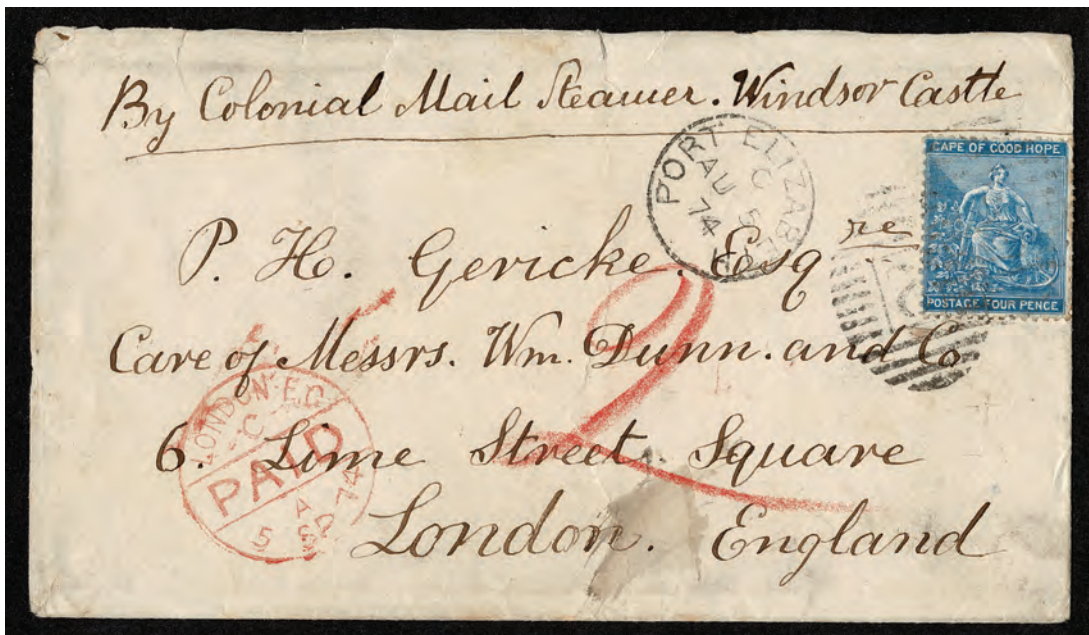 By Colonial Mail Steamer. Windsor Castle
PORT ELIZAB
C
AU 5
74
CAPE OF GOOD HOPE
POSTAGE FOUR PENCE
P. H. Gericke. Esqre
Care of Messrs. Wm. Dunn. and Co
6. Lime Street. Square
London. England
2
LONDON·E.C
C
PAID
5
74